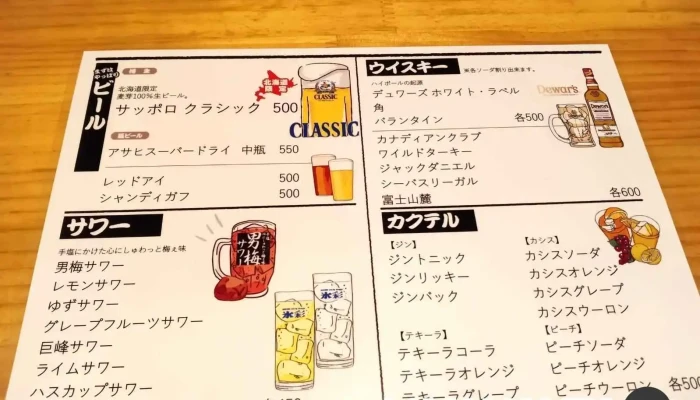 まずはやっぱり
ビール
樽生
北海道限定
麦芽100%生ビール。
サッポロ クラシック 500
北海道
限定
CLASSIC
CLASSIC
瓶ビール
アサヒスーパードライ 中瓶 550
レッドアイ 500
シャンディガフ 500
サワー
手塩にかけた心にしゅわっと梅ぇ味
男梅サワー
レモンサワー
ゆずサワー
グレープフルーツサワー
巨峰サワー
ライムサワー
ハスカップサワー
男梅
サワー
氷彩
氷彩
ウイスキー ※各ソーダ割り出来ます。
ハイボールの起源
デュワーズ ホワイト・ラベル
角
バランタイン 各500
Dewar's
Dewar's
カナディアンクラブ
ワイルドターキー
ジャックダニエル
シーバスリーガル
富士山麓 各600
カクテル
【ジン】
ジントニック
ジンリッキー
ジンバック
【テキーラ】
テキーラコーラ
テキーラオレンジ
テキーラグレープ
【カシス】
カシスソーダ
カシスオレンジ
カシスグレープ
カシスウーロン
【ピーチ】
ピーチソーダ
ピーチオレンジ
ピーチウーロン 各500